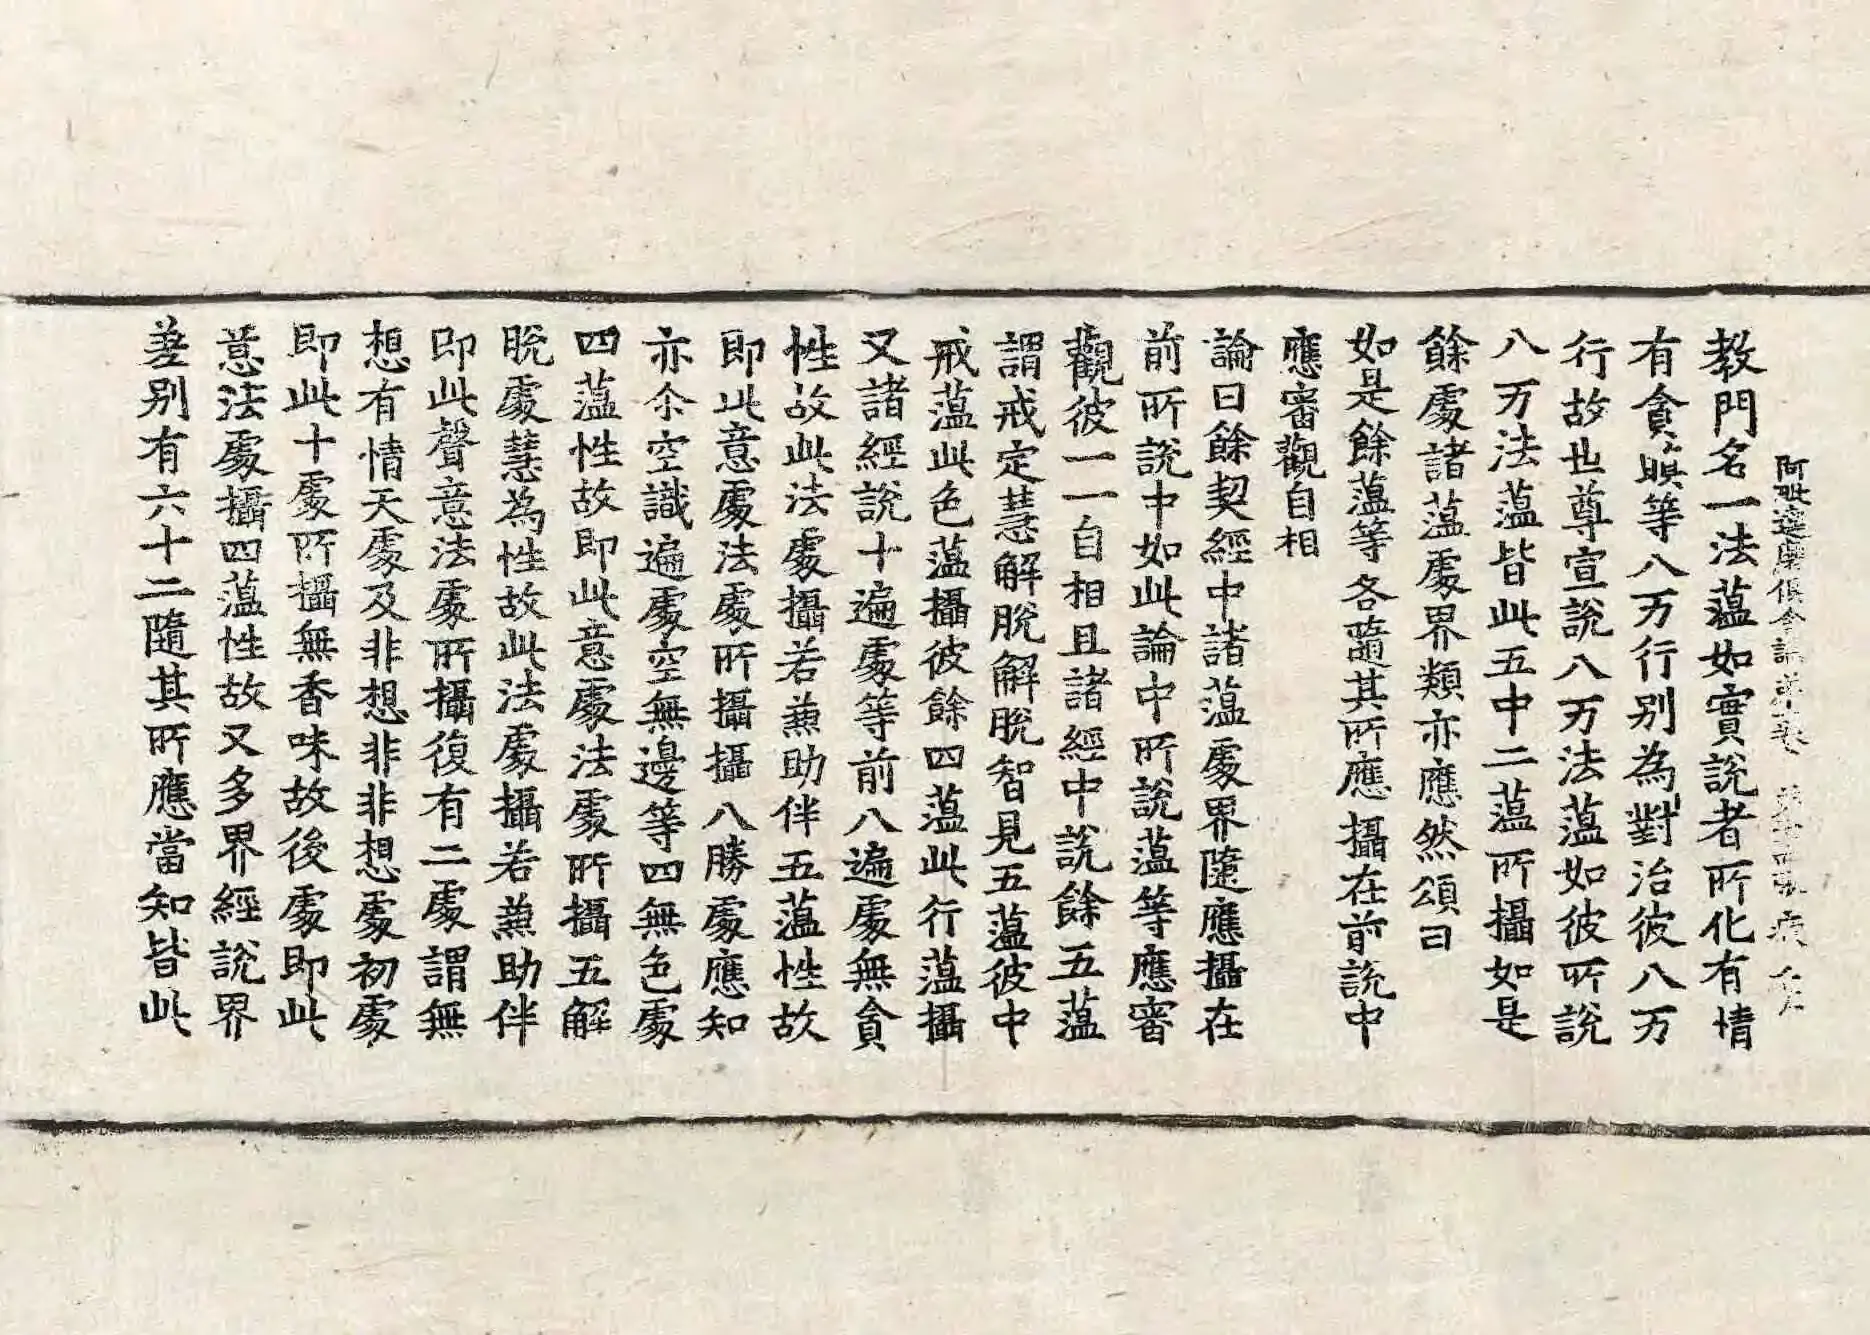 阿毗達磨俱舍論第一卷
教門名一法蘊如實說者所化有情
有貪瞋等八万行別為對治彼八万
行故世尊宣說八万法蘊如彼所說
八万法蘊皆此五中二蘊所攝如是
餘處諸蘊處界類亦應然頌曰
如是餘蘊等 各隨其所應 攝在前說中
應審觀自相
論曰餘契經中諸蘊處界隨應攝在
前所說中如此論中所說蘊等應審
觀彼一一自相且諸經中說餘五蘊
謂戒定慧解脫解脫智見五蘊彼中
戒蘊此色蘊攝彼餘四蘊此行蘊攝
又諸經說十遍處等前八遍處無貪
性故此法處攝若兼助伴五蘊性故
即此意處法處所攝攝八勝處應知
亦尒空識遍處空無邊等四無色處
四蘊性故即此意處法處所攝五解
脫處慧為性故此法處攝若兼助伴
即此聲意法處所攝復有二處謂無
想有情天處及非想非非想處初處
即此十處所攝無香味故後處即此
意法處攝四蘊性故又多界經說界
差別有六十二隨其所應當知皆此